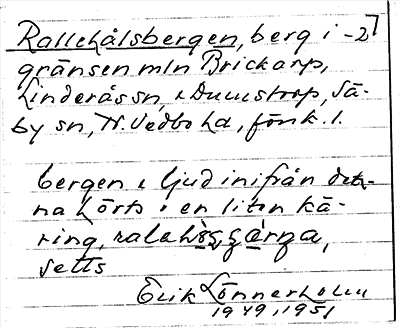 Rallehålsbergen, berg i -2
gränsen mln Brickarp,
Linderås sn, & Dumstrop, Sä-
by sn, N. Vedbo hd, Jönk. l.
bergen & ljud inifrån
na hörts & en liten kä-
ring,
setts
Erik Lönnerholm
1949, 1951